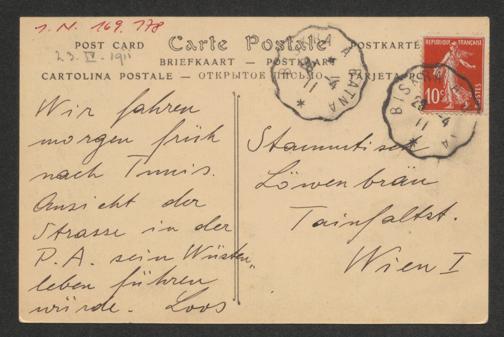 I. N. 169.778
23. IV. 1911
POST CARD Carte Postale POSTKARTE
BRIEFKAART — POSTKORT
CARTOLINA POSTALE — ОТКРЫТОЕ ПИСЬМО — TARJETA POSTAL
BISKRA A BATNA
11
RÉPUBLIQUE FRANÇAISE
10c
POSTES
BISKRA
11
Wir fahren
morgen früh
nach Tunis.
Ansicht der
Strasse in der
P. A. sein Wüsten„
leben führen
würde. Loos
Stammtisch
Löwenbräu
Tainfaltst.
Wien I